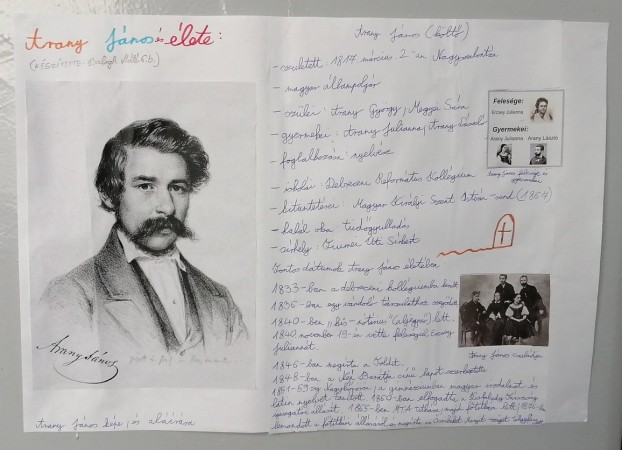 Arany János és élete:
(KÉSZÍTETTE: Balogh 6.b.)
Arany János
Arany János képe, és aláírása
Arany János (költő)
- született 1817 március 2-án Nagyszalonta
- magyar állampolgár
- szülei: Arany György, Megyeri Sára
- gyermekei: Arany Julianna, Arany László
- foglalkozása: nyelvész
- iskolái: Debreceni Református Kollégium
- kitüntetései: Magyar Királyi Szent István-rend (1864)
- halál oka: tüdőgyulladás
- sírhely: Fiumei Úti Sírkert
Felesége:
Ercsey Julianna
Gyermekei:
Arany Julianna Arany László
Arany János felesége és gyermekei
Fontos dátumok Arany János életében
1833-ban a debreceni kollégiumba került
1836-ban egy vándor társulathoz
1840-ben "kis-nótárius" (aljegyző) lett.
1840 november 19-én vette feleségül Ercsey
Juliannát.
1846-ban megírta a Toldit.
1848-ban a Nép Barátja című lapot szerkesztette
1851-59-ig Nagykőrösön, a gimnáziumban magyar irodalmat és
latin nyelvet tanított. 1860-ban elfogadta a Kisfaludy Társaság
igazgatói állását. 1865-ben MTA titkára, majd főtitkára lett, 1876-ban
lemondott a főtitkári állásáról, és megírta az
Arany János családja